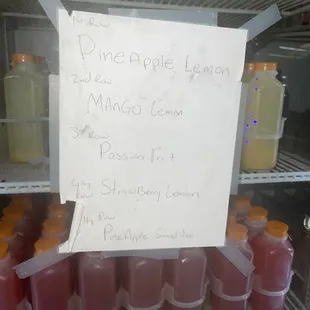 1st Row
PineApple Lemon
2nd Row
MANGO Lemon
3rd Row
Passion Fruit
4th Row
StrawBerry Lemon
Row
PineApple